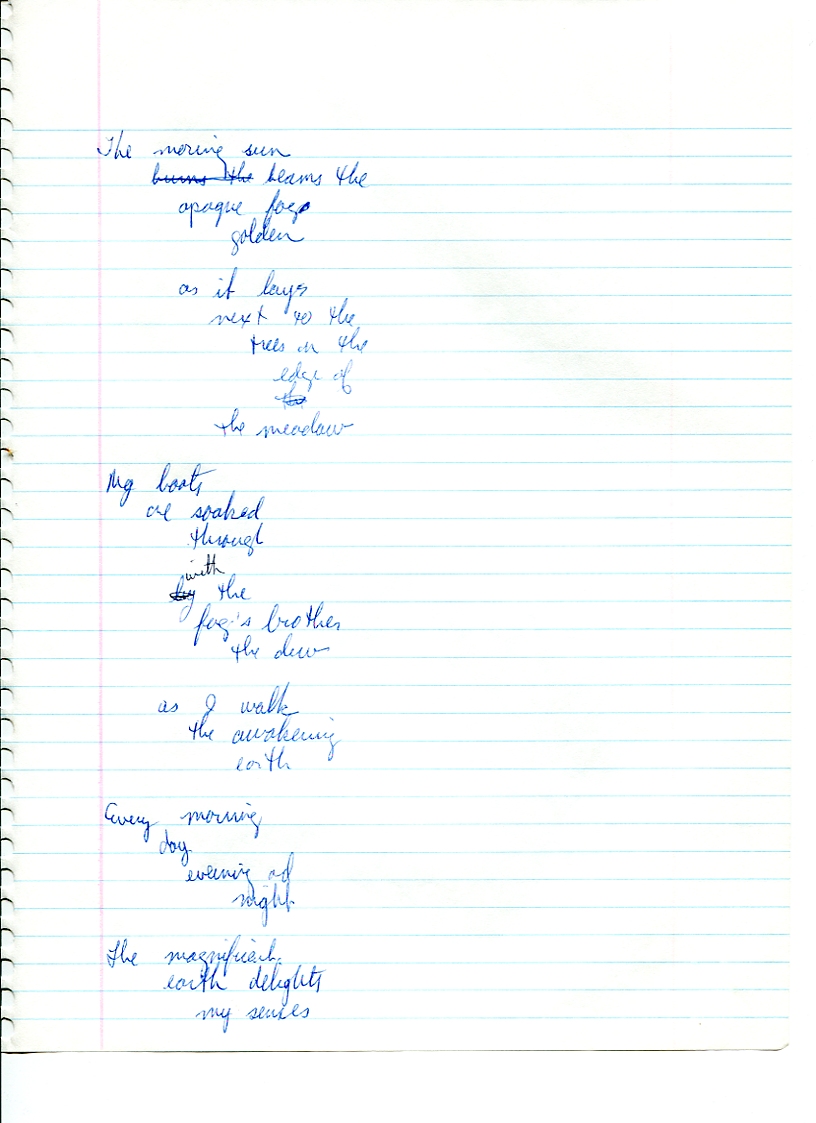 The morning sun
burns the beams the
opaque fog
golden
as it lays
next to the
trees on the
edge of
the
the meadow
My boots
are soaked
through
with
by the
fog's brother
the dew
as I walk
the awakening
earth
Every morning
day
evening and
night
The magnificent
earth delights
my senses